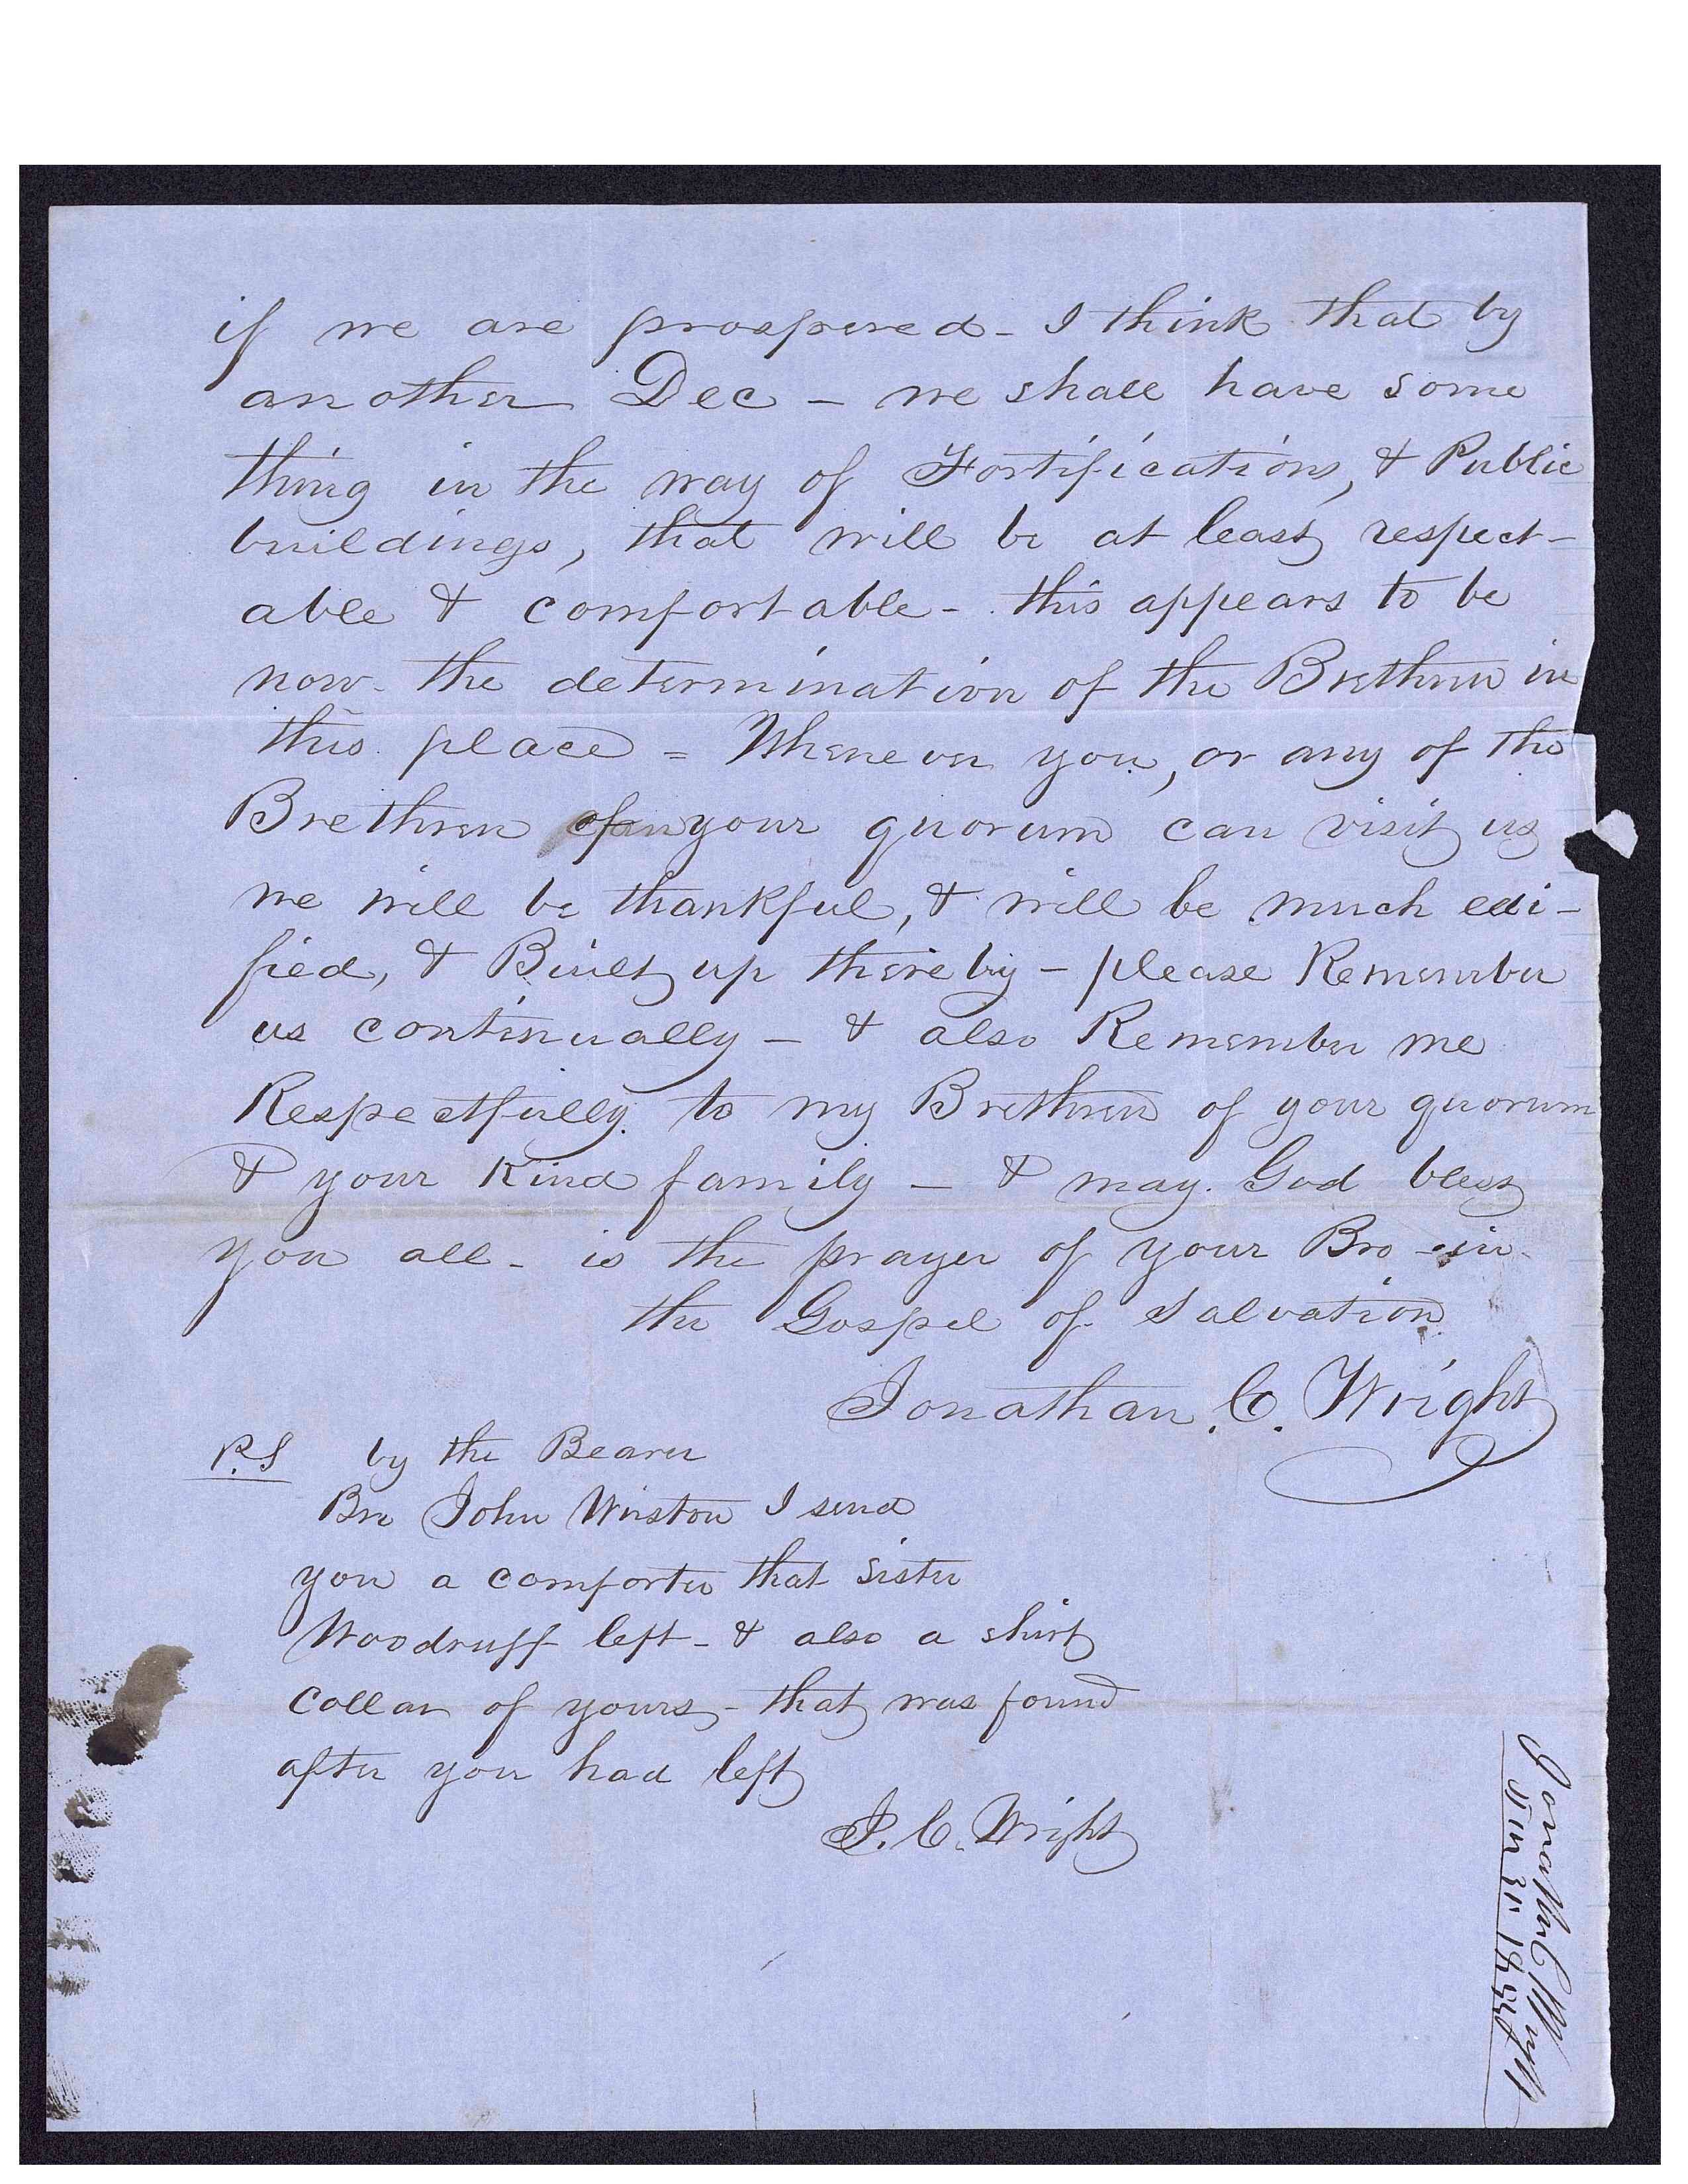 if we are prospered - I think that by
another Dec - we shall have some
thing in the way of Fortifications, & Public
buildings, that will be at least respect-
able & comfortable - this appears to be
now the determination of the Brethren in
this place = Whenever you, or any of the
Brethren of your quorum can visit us
we will be thankful, & will be much edi-
fied, & Built up thereby - please Remember
us continually - & also Remember me
Respectfully to my Brethren of your quorum
& your Kind family - & may God bless
you all - is the prayer of your Bro - in
the Gospel of Salvation
Jonathan. C. Wright
P.S by the Bearer
Bro John Winston I send
you a comforter that sister
Woodruff left - & also a shirt
Collar of yours - that was found
after you had left
J. C. Wright
Jonathan C Wright